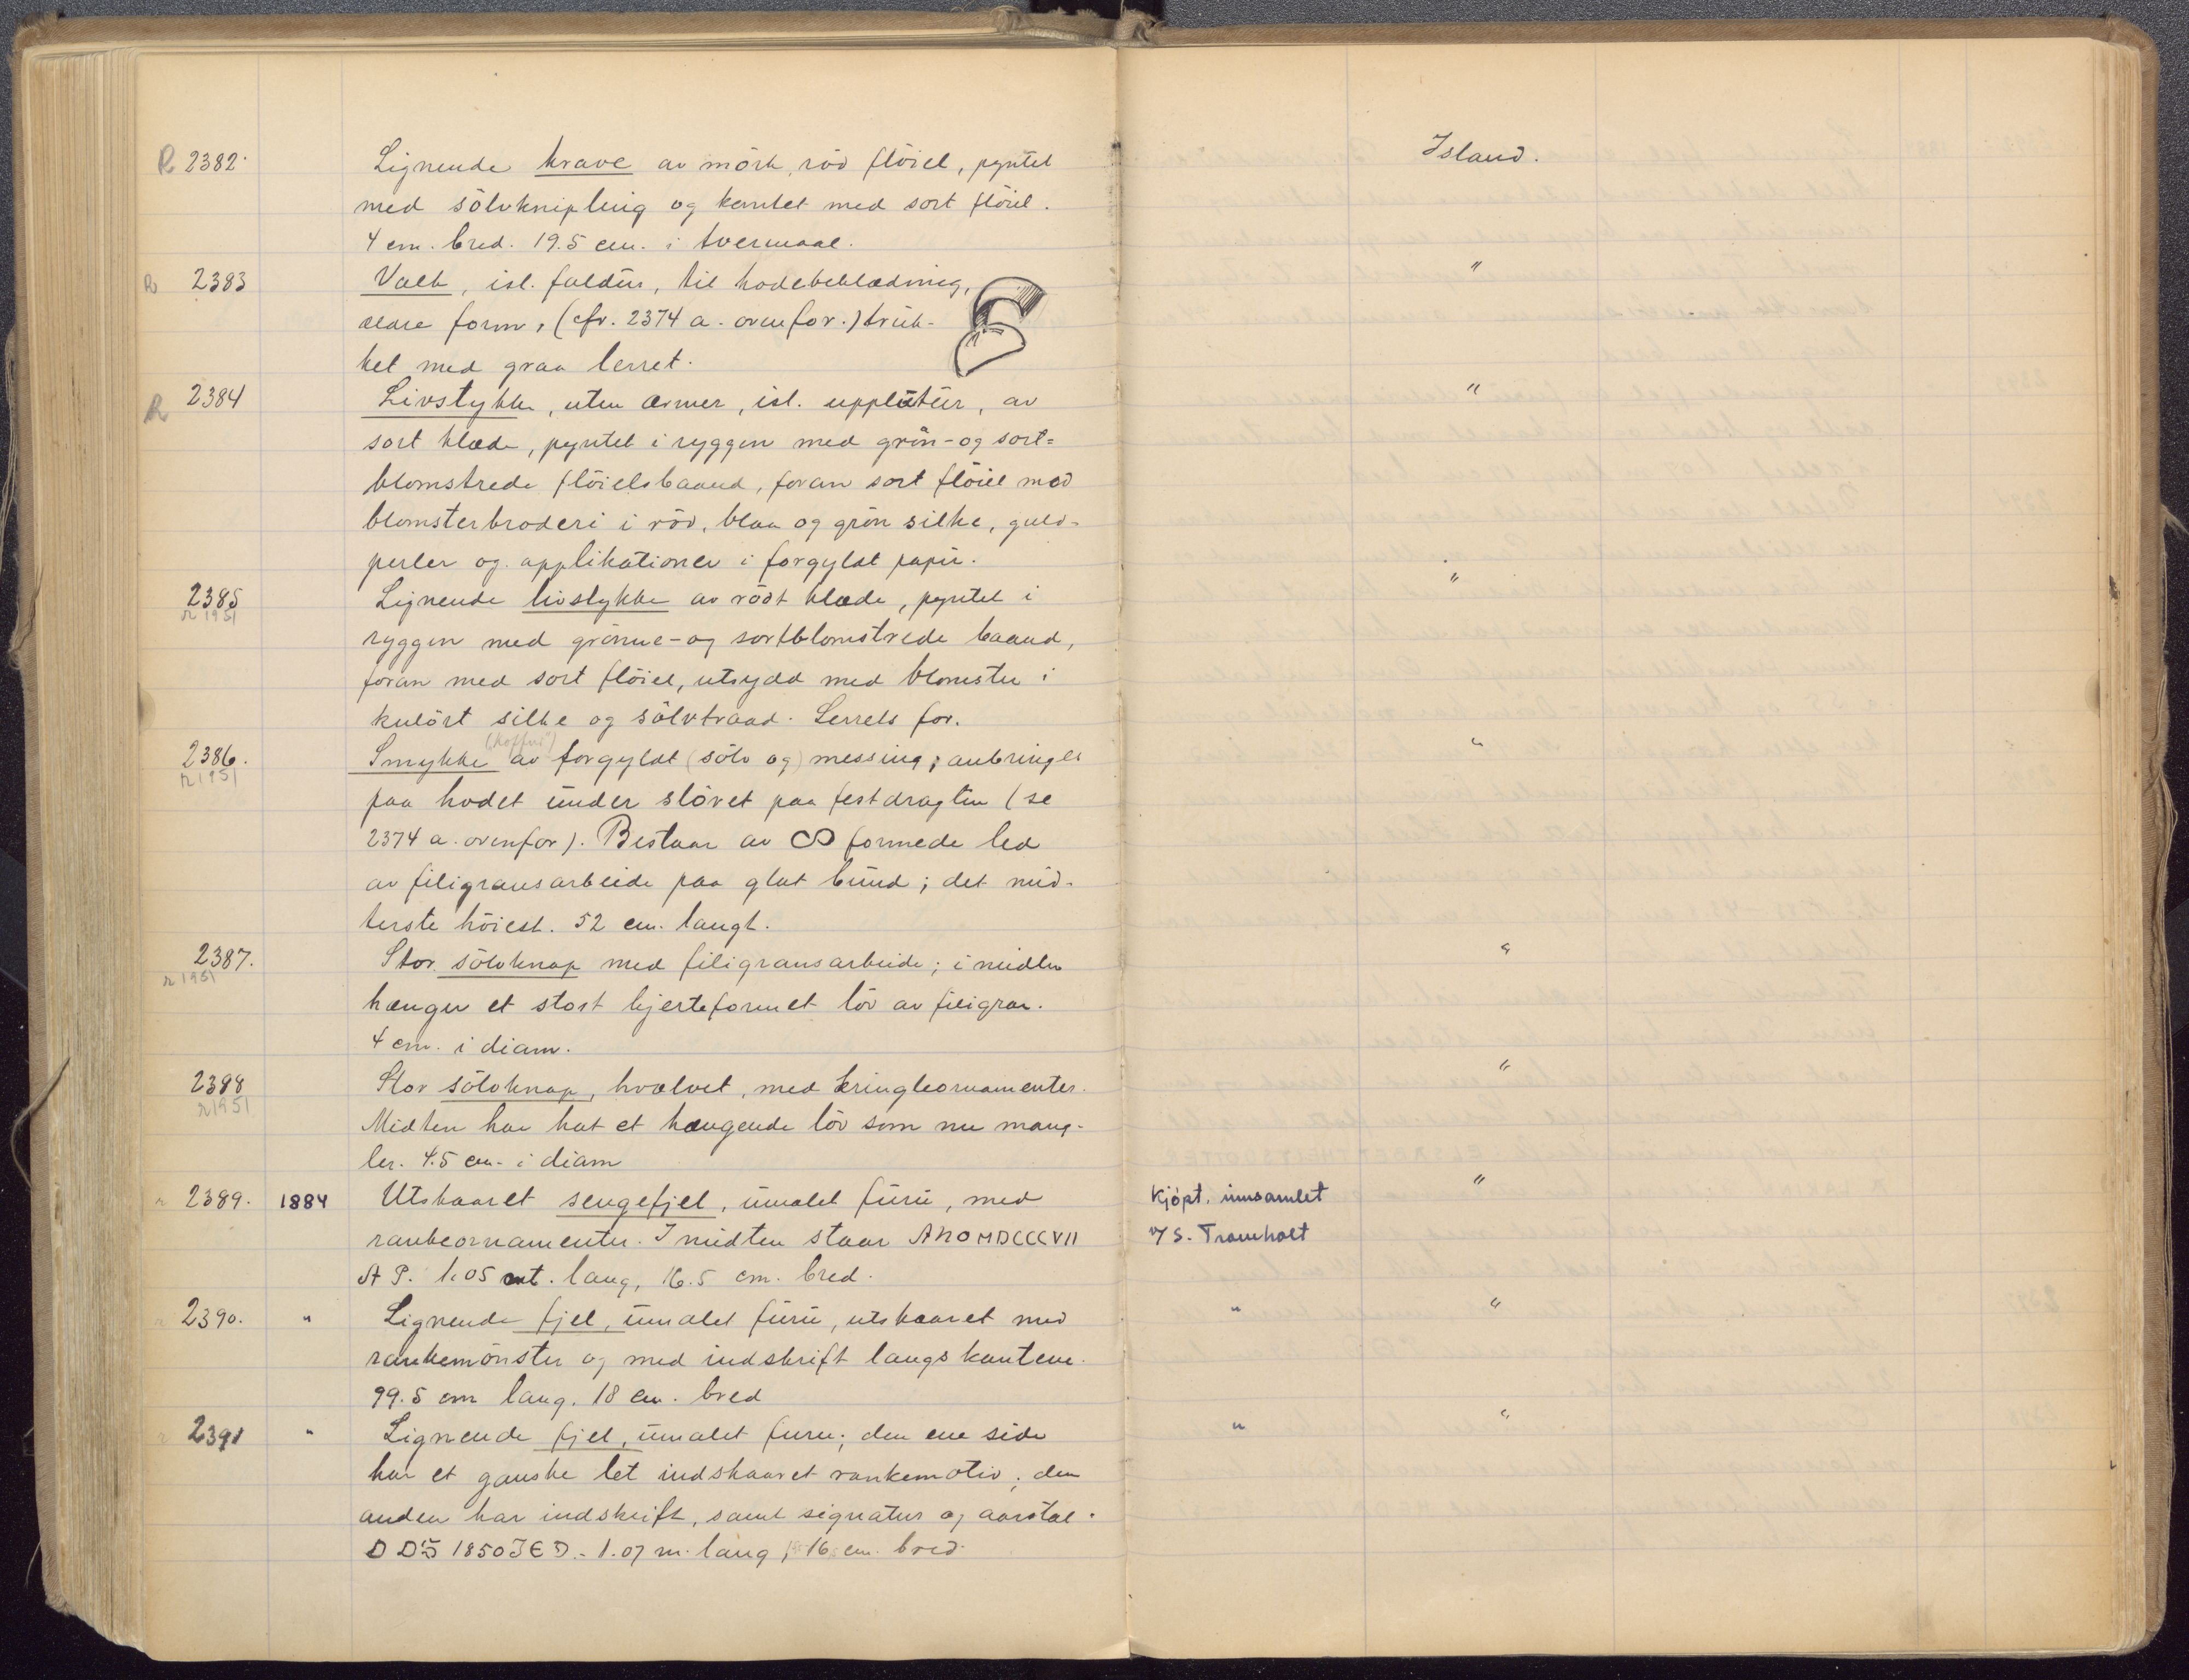 R 2382. Lignende krave av mörk, röd flöiel, pyntet Island.
med sölvknipling og kantet med sort flöiel.
4 cm. bred. 19.5 cm. i tvermaal.
R 2383 Valk, isl. faldur, til hodebeklædning, "
ældre form, (cfr. 2374 a. ovenfor.) truk-
ket med graa lerret.
R 2384 Livstykke, uten ærmer, isl. upplutur, av "
sort klæde, pyntet i ryggen med grön- og sort=
blomstrede flöielsbaand, foran sort flöiel med
blomsterbroderi i röd, blaa og grön silke, guld-
perler og applikationer i forgyldt papir.
2385 Lignende livstykke av rödt klæde, pyntet i "
r 1951
ryggen med grönne- og sortblomstrede baand,
foran med sort flöiel, utsydd med blomster i
kulört silke og sölvtraad. Lerrets for.
(Koffur)
2386. Smykke av forgyldt (sölv og) messing; anbringes "
r 1951
paa hodet under slöret paa festdragten (se
2374 a. ovenfor). Bestaar av ∞ formede led
av filigransarbeide paa glat bund; det mid-
terste höiest. 52 cm. langt.
2387. Stor sölvknap med filigransarbeide; i midten "
r 1951
hænger et stort hjerteformet löv av filigran.
4 cm. i diam.
2388 Stor sölvknap, hvælvet, med kringleornamenter. "
r 1951
Midten har hat et hængende löv som nu mang-
ler. 4.5 cm. i diam
r 2389. 1884 Utskaaret sengefjel, umalet furu, med Kjöpt. innsamlet "
rankeornamenter. I midten staar ANO MDCCCVII v/ S. Tromholt
A P. 1.05 mt. lang, 16.5 cm. bred.
r 2390. " Lignende fjel, umalet furu, utskaaret med " "
rankemönster og med indskrift langs kantene.
99.5 cm lang. 18 cm. bred
r 2391 " Lignende fjel, umalet furu; den ene side " "
har et ganske let indskaaret rankemotiv; den
anden har indskrift, samt signatur og aarstal.
1850 - 1.07 m. lang, 16 cm. bred.